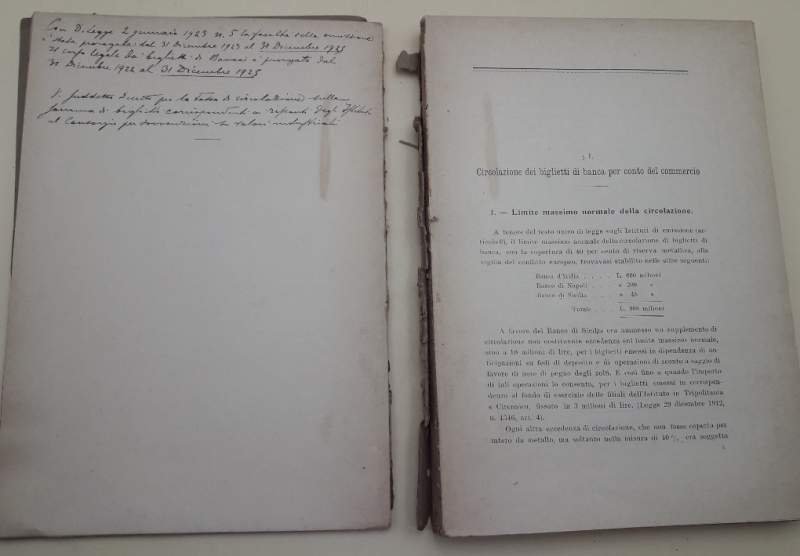 Con D. Legge 2 gennaio 1923 n. 5 la facoltà della emissione
è stata prorogata dal 31 Dicembre 1923 al 31 Dicembre 1925
Il corso legale dei biglietti di Banca è prorogato dal
31 Dicembre 1922 al 31 Dicembre 1925
per la tassa di circolazione sulla
somma di biglietti corrispondenti a risconti degli Istituti
al Consorzio per sovvenzioni su valori industriali
§ I.
Circolazione dei biglietti di banca per conto del commercio
1. — Limite massimo normale della circolazione.
A tenore del testo unico di legge sugli Istituti di emissione (ar-
il limite massimo normale della circolazione di biglietti di
banca, con la copertura di 40 per cento di riserva metallica, alla
vigilia del conflitto europeo, trovavasi stabilito nelle cifre seguenti:
Banca d'Italia . . . . L. 660 milioni
Banco di Napoli . . . » 200 »
Banco di Sicilia . . . » 48 »
Totale . . . L. 908 milioni
A favore del Banco di Sicilia era ammesso un supplemento di
circolazione non costituente eccedenza sul limite massimo normale,
sino a 10 milioni di lire, per i biglietti emessi in dipendenza di an-
ticipazioni su fedi di deposito e di operazioni di sconto a saggio di
favore di note di pegno degli zolfi. E così fino a quando l'importo
di tali operazioni lo consenta, per i biglietti emessi in corrispon-
denza al fondo di esercizio delle filiali dell'Istituto in Tripolitania
e Cirenaica, fissato in 3 milioni di lire. (Legge 29 dicembre 1912,
n. 1346, art. 4).
Ogni altra eccedenza di circolazione, che non fosse coperta per
intero da metallo, ma soltanto nella misura di 40 %, era soggetta